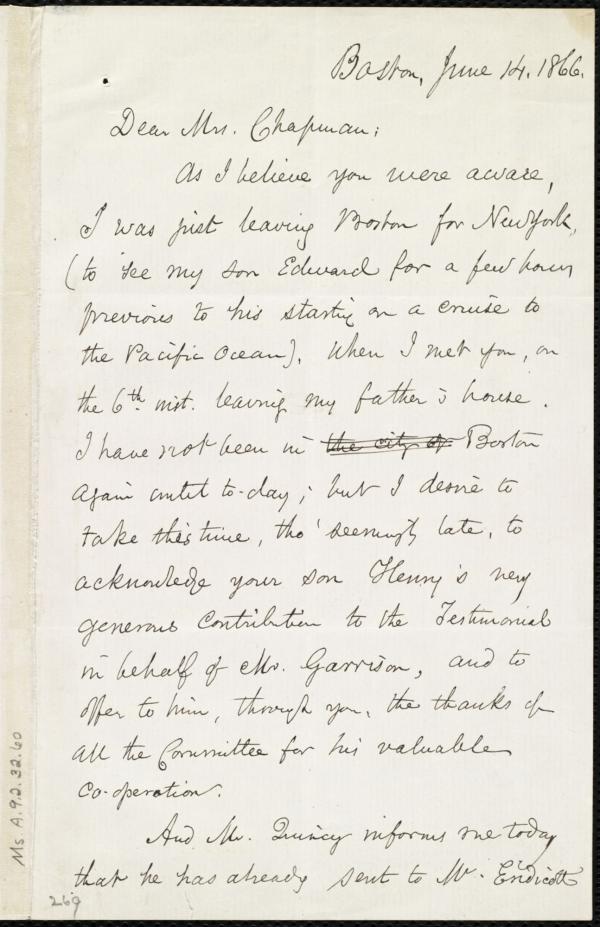 Boston, June 14. 1866.
Dear Mrs. Chapman;
As I believe you were aware,
I was just leaving Boston for New York,
(to see my son Edward for a few hours
previous to his starting on a cruise to
the Pacific Ocean), when I met you, on
the 6th inst. leaving my father's house.
I have not been in the city of Boston
again until to-day; but I desire to
take this time, tho' seemingly late, to
acknowledge your son Henry's very
generous contribution to the Testimonial
in behalf of Mr. Garrison, and to
offer to him, through you, the thanks of
all the Committee for his valuable
co-operation.
And Mr. Quincy informs me today
that he has already sent to Mr. Endicott
269
Ms A.9.2.32.60